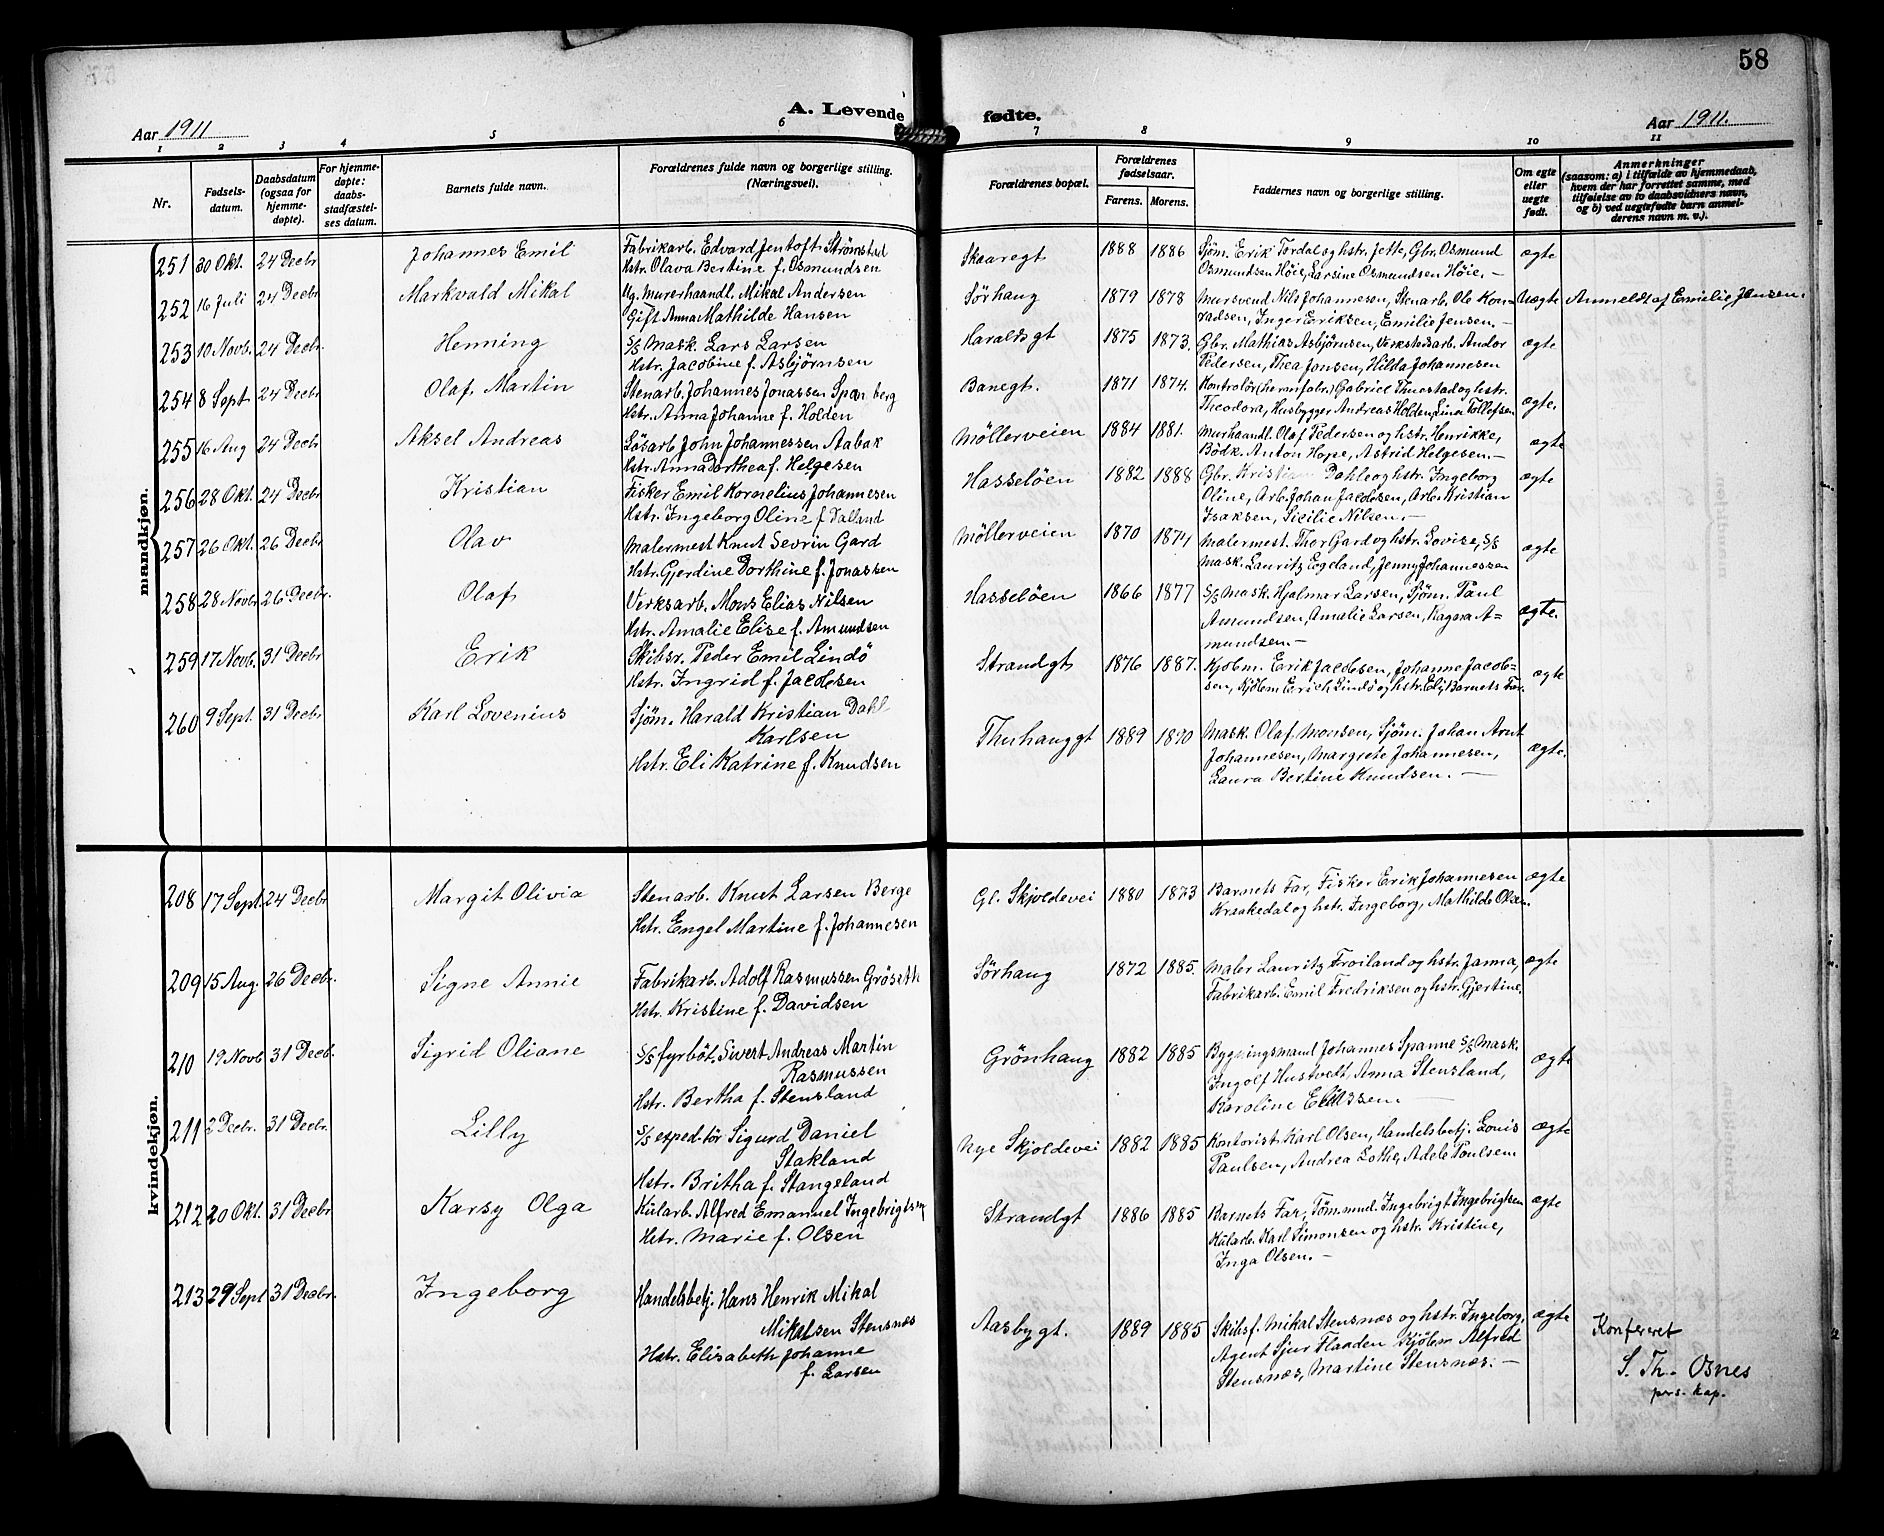 58
A. Levende fødte.
Aar 1911
Aar 1911.
1 2 3 4 5 6 7 8 9 10 11
Nr.
Fødsels-
datum.
Daabsdatum
(ogsaa for
hjemme-
døpte).
For hjemme-
døpte:
daabs-
stadfæstel-
ses datum.
Barnets fulde navn.
Forældrenes fulde navn og borgerlige stilling.
(Næringsvei).
Forældrenes bopæl.
Forældrenes
fødselsaar.
Farens. Morens.
Faddernes navn og borgerlige stilling.
Om egte
eller
uegte
født.
Anmerkninger
(saasom: a) i tilfælde av hjemmedaab,
hvem der har forrettet samme, med
tilføielse av to daabsvidners navn,
og b) ved uegtefødte barn anmel-
derens navn m. v.).
mandkjøn.
251 30 Okt. 24 Decbr Johannes Emil Fabrikarb. Edvard Jentoft Strømstad Skaaregt 1888 1886 Sjøm. Erik Tordal og hstr. Jette, Gbr. Osmund ægte
Hstr. Olava Bertine f. Osmundsen Osmundsen Høie, Larsine Osmundsen Høie. —
252 16 Juli 24 Decbr Markvald Mikal Ug. Murerhaandl. Mikal Andersen Sørhaug 1879 1878 Mursvend Nils Johannesen, Stenarb. Ole Kon- Uægte Anmeldt af Emilie Jensen.
Gift Anna Mathilde Hansen radsen, Inger Eriksen, Emilie Jensen. —
253 10 Novb. 24 Decbr. Henning S/S Mask. Lars Larsen Haraldsgt 1875 1873. Gbr. Mathias Asbjørnsen, Verkstedsarb. Andor ægte
Hstr. Jacobine f. Asbjørnsen Pedersen, Thea Jansen, Hilda Johannesen
254 8 Sept 24 Decbr Olaf Martin Stenarb. Johannes Jonassen Spanberg Banegt. 1871 1874. Kontrolör (hermfabr.) Gabriel Thuestad og hstr. ægte.
Hstr. Anna Johanne f. Holden Theodora, Husbygger Andreas Holden, Lina Tollefsen
255 16 Aug 24 Decbr Aksel Andreas Løsarb. John Johannessen Aabak Möllerveien 1884 1881. Murhaandl. Olaf Pedersen og hstr. Henrikke, ægte
Hstr. Anna Dorthea f. Helgesen Bödk. Anton Hope, Astrid Helgesen. —
256 28 Okt. 24 Decbr Kristian Fisker Emil Kornelius Johannesen Hasseløen 1882 1888 Gbr. Kristian Dahle og hstr. Ingeborg ægte
Hstr. Ingeborg Oline f. Dalland Oline, Arb. Johan Jacobsen, Arb. Kristian
Isaksen, Sicilie Nilsen. —
257 26 Okt. 26 Decbr Olav Malermest Knut Sevrin Gard Möllerveien 1870 1874 Malermest. Thor Gard og hstr. Lovise, S/S ægte
Hstr. Gjerdine Dorthine f. Jonassen Mask. Lauritz Egeland, Jenny Johannessen
258 28 Novbr 26 Decbr. Olaf Verksarb. Mons Elias Nilsen Hasseløen 1866 1877 S/S Mask. Hjalmar Larsen, Sjöm. Paul ægte.
Hstr. Amalie Elise f. Amundsen Amundsen, Amalie Larsen, Ragna A-
mundsen. —
259 17 Novb. 31 Decbr Erik Skibsr. Peder Emil Lindö Strandgt 1876 1887. Kjøbm. Erik Jacobsen, Johanne Jacob- ægte
Hstr. Ingrid f. Jacobsen sen, Kjöbm Erich Lindö og hstr. Eli, Barnets Far.
260 9 Sept. 31 Decbr Karl Lovenius Sjøm. Harald Kristian Dahl Thuhauggt 1889 1890 Mask. Olaf Monsen, Sjöm. Johan Arnt ægte.
Karlsen Johannesen, Margrete Johannesen,
Hstr. Eli Katrine f. Knudsen Laura Bertine Knudsen. —
kvindekjøn.
208 17 Sept. 24 Decbr Margit Olivia Stenarb. Knut Larsen Berge Gl. Skjoldevei 1880 1873 Barnets Far, Fisker Erik Johannesen ægte
Hstr. Engel Martine f. Johannesen Kraakedal og hstr. Ingeborg, Mathilde Olsen.
209 15 Aug. 26 Decbr. Signe Annie Fabrikarb. Adolf Rasmussen Gröseth Sørhaug 1872 1885. Maler Lauritz Froiland og hstr. Janna, ægte
Hstr. Kristine f. Davidsen Fabrikarb. Emil Fredriksen og hstr. Gjertine.
210 19 Novb 31 Decb. Sigrid Oliane S/S fyrböt. Sivert Andreas Martin Grönhaug 1882 1885 Bygningsmand Johannes Spanne S/S Mask. ægte
Rasmussen Ingolf Hustvedt, Anna Stensland,
Hstr. Bertha f. Stensland Karoline —
211 2 Decbr. 31 Decbr. Lilly S/S exped-tör Sigurd Daniel Nye Skjoldevei 1882 1885 Kontorist Karl Olsen, Handelsbetj. Louis ægte
Stakland Paulsen, Andrea Lothe, Adele Poulsen
Hstr. Britha f. Stangeland
212 20 Okt. 31 Decbr Karsy Olga Kularb. Alfred Emanuel Ingebrigtsen Strandgt 1886 1885 Barnets Far, Tømmnd. Ingebrigt Ingebrigtsen ægte
Hstr. Marie f. Olsen Kularb. Karl Simonsen og hstr. Kristine,
Inga Olsen. —
213 29 Sept 31 Decbr. Ingeborg Handelsbetj. Hans Henrik Mikal Aasbygt. 1889 1885 Skibsf. Mikal Stensnæs og hstr. Ingeborg, ægte Konfereret
Mikalsen Stensnæs Agent Sjur Flaaden Kjöbm Alfred S. Th. Osnes
Hstr. Elisabeth Johanne Stensnæs, Martine Stensnæs. — pers. kap.
f. Larsen